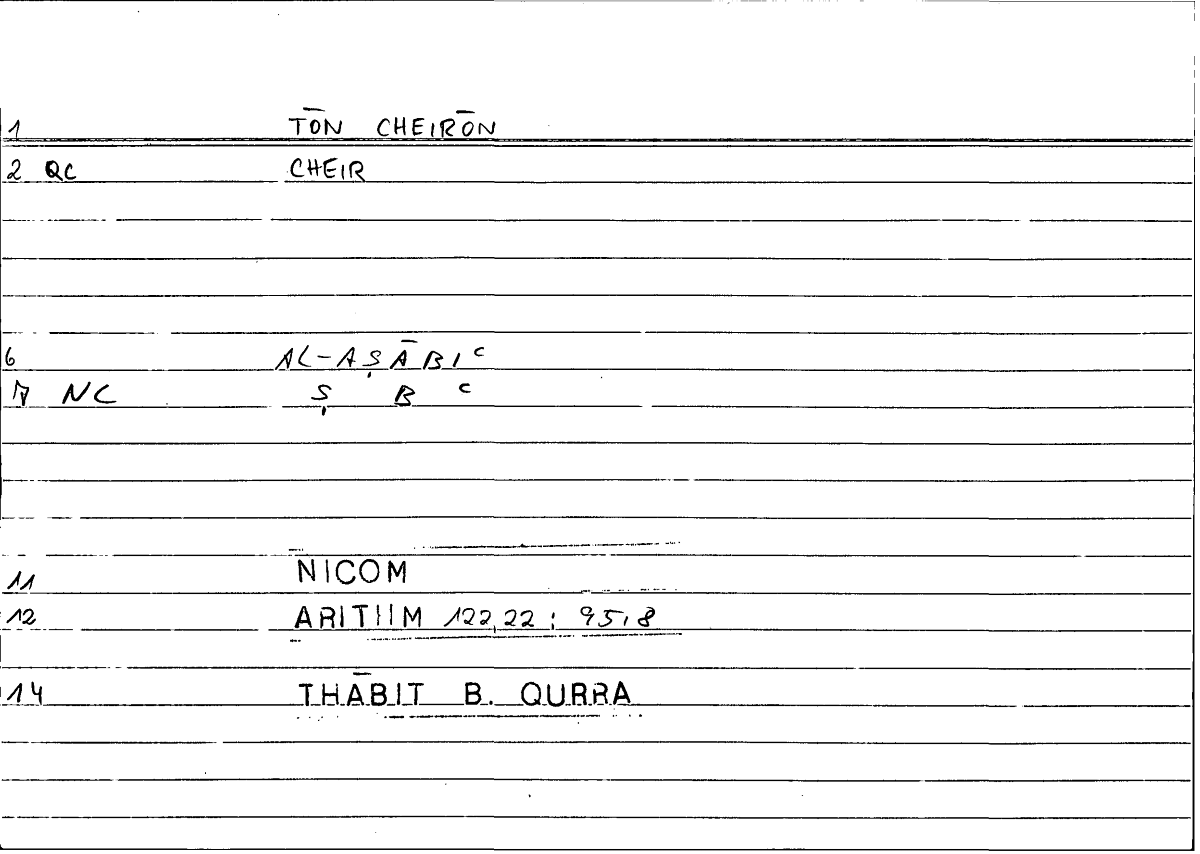 1 TŌN CHEIRŌN
2 QC CHEIR
6 AL-AṢĀBIʿ
7 NC Ṣ B ʿ
11 NICOM
12 ARITHM 122,22 : 95,8
14 THĀBIT B. QURRA